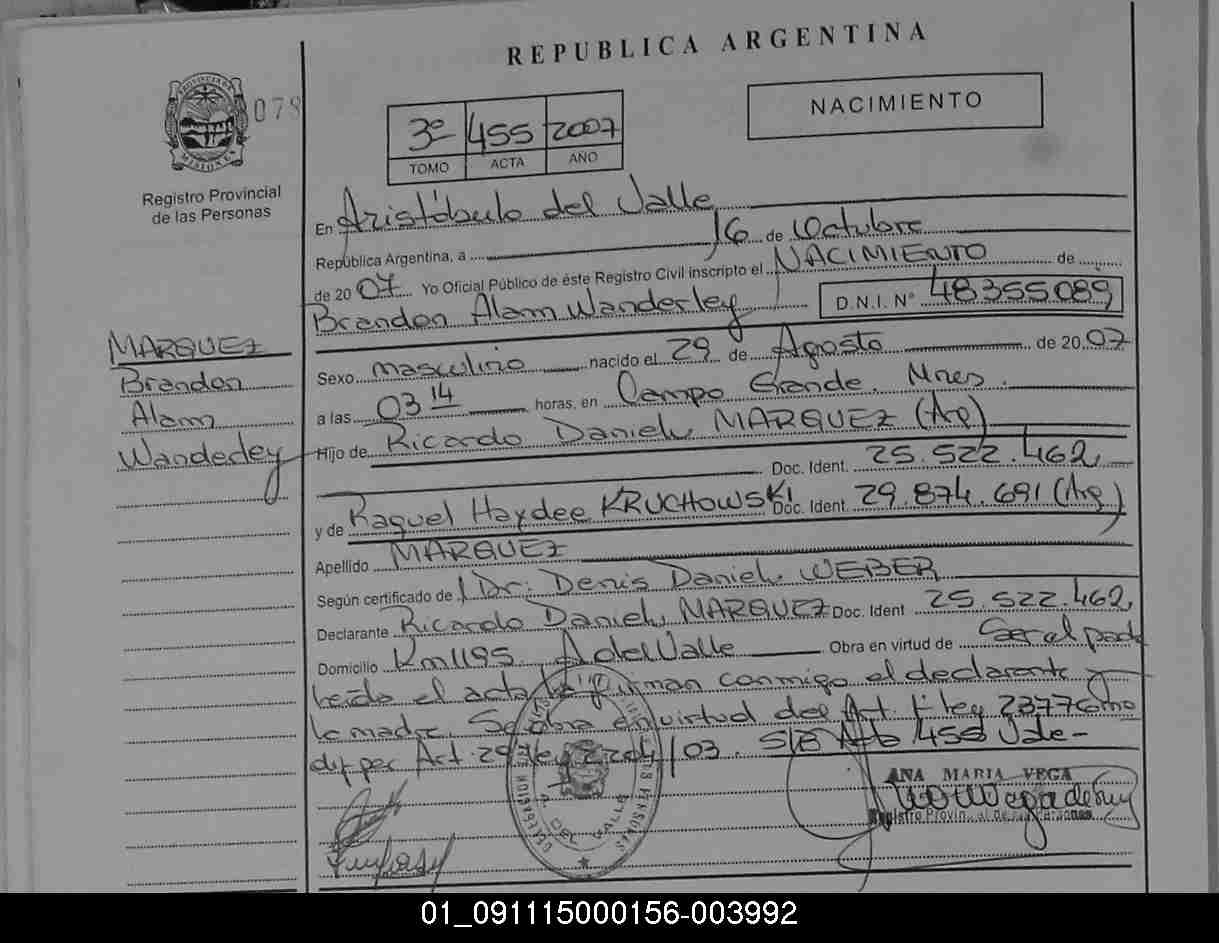 REPUBLICA ARGENTINA
PROVINCIA DE
MISIONES
078
Registro Provincial
de las Personas
3º 455 2007
TOMO ACTA AÑO
NACIMIENTO
En Aristóbulo del Valle
República Argentina, a 16 de Octubre
de 2007 Yo Oficial Público de éste Registro Civil inscripto el NACIMIENTO de
Brandon Alam Wanderley D.N.I. Nº 48355089
MARQUEZ
Brandon
Alam
Wanderley
Sexo masculino nacido el 29 de Agosto de 2007
a las 03 14 horas, en Campo Grande. Mnes.
Hijo de Ricardo Daniel MARQUEZ (Arg)
Doc. Ident. 25.522.462
y de Raquel Haydee KRUCHOWSKI Doc. Ident. 29.874.691 (Arg)
Apellido MARQUEZ
Según certificado de Dr: Denis Daniel WEBER
Declarante Ricardo Daniel MARQUEZ Doc. Ident 25.522.462
Domicilio Km 1195 A del Valle Obra en virtud de Ser el padre
leida el acta la firman conmigo el declarante y
la madre. Se obra en virtud del Art. 1º ley 23776 mo
dif per Art. 29 ley /03. S/B Afo 455 Vale-
ANA MARIA VEGA
Registro Provin. al de las Personas
01_091115000156-003992